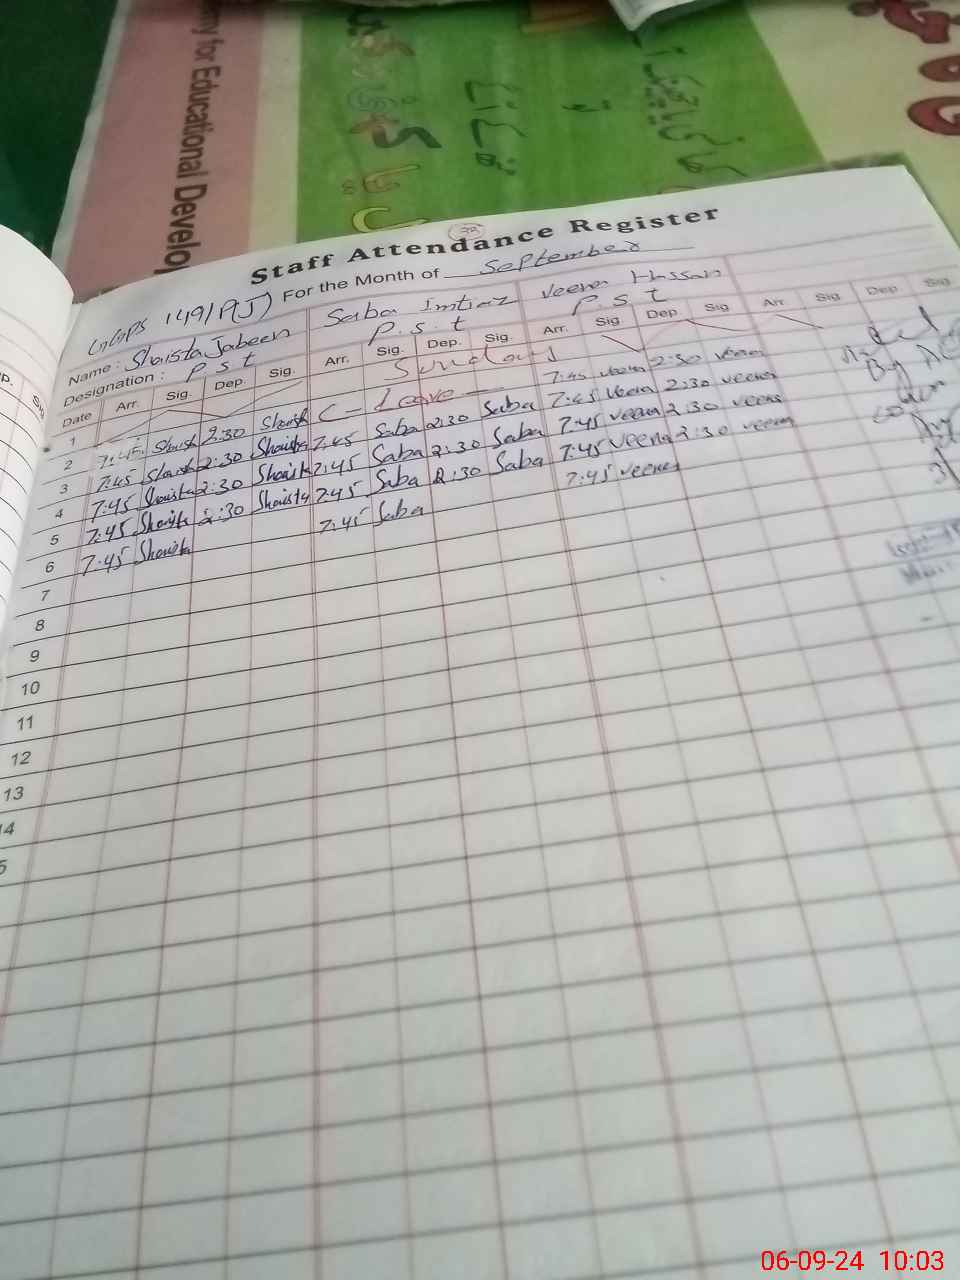 my for Educational Develop
Staff Attendance Register
For the Month of September
GGPS 149/P(J)
Name: Shaista Jabeen Saba Imtiaz Veena Hassan
Designation: P S t P.S.t P.S.t
Date Arr. Sig. Dep. Sig. Arr. Sig. Dep. Sig. Arr. Sig. Dep. Sig Arr. Sig Dep Sig
1 Sunday
2 7:45 Shaista 2:30 Shaista C-Leave 7:45 Veena 2:30 Veena
3 7:45 Shaista 2:30 Shaista 7:45 Saba 2:30 Saba 7:45 Veena 2:30 veena
4 7:45 Shaista 2:30 Shaista 7:45 Saba 2:30 Saba 7:45 veena 2:30 veena
5 7:45 Shaista 2:30 Shaista 7:45 Saba 2:30 Saba 7:45 veena 2:30 veena
6 7:45 Shaista 7:45 Saba 7:45 veena
7
8
9
10
11
12
13
14
5
06-09-24 10:03